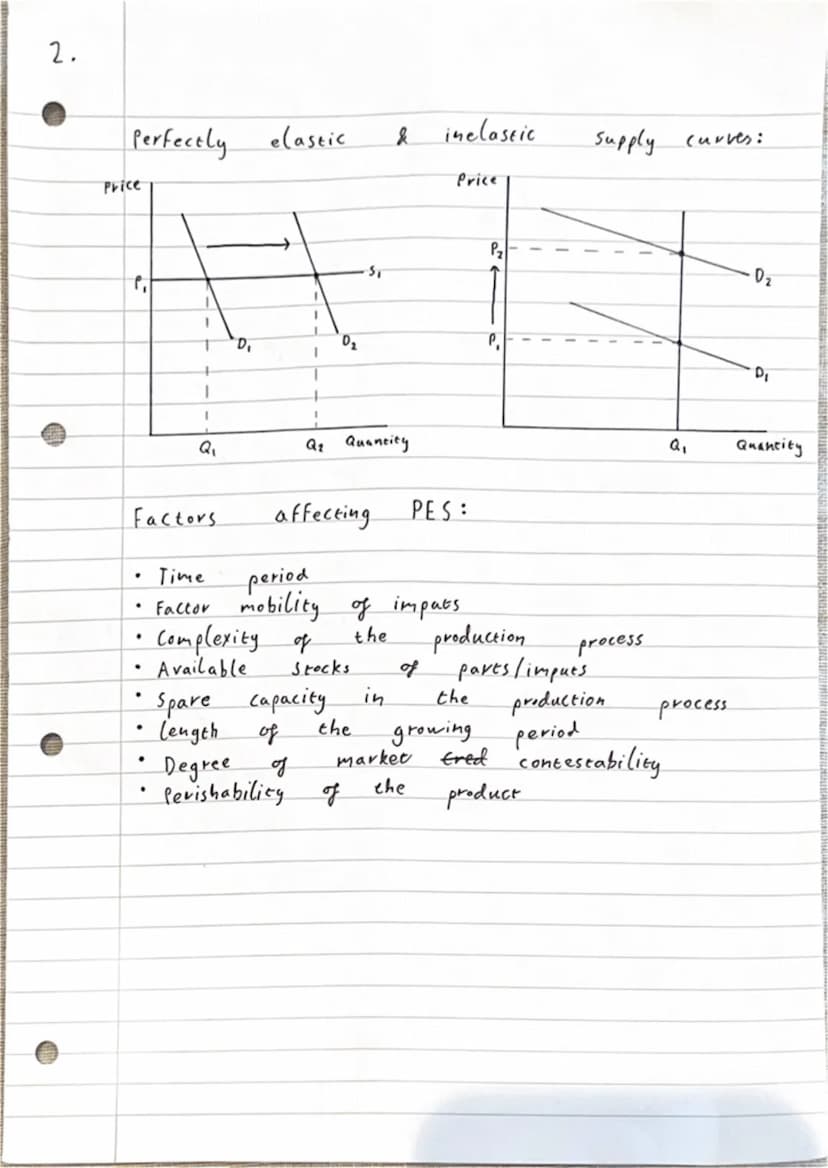 2.
Perfectly elastic & inelastic supply curves:
Price
P₁
S₁
D₁
D₂
Q₁
Q₂
Quantity
Price
P₂
P₁
D₂
D₁
Q₁
Quantity
Factors affecting PES:
• Time period
• Factor mobility of imputs
• Complexity of the production process
• Available stocks of parts/imputs
• Spare capacity in the production process
• Length of the growing period
• Degree of market cred contestability
• Perishability of the product